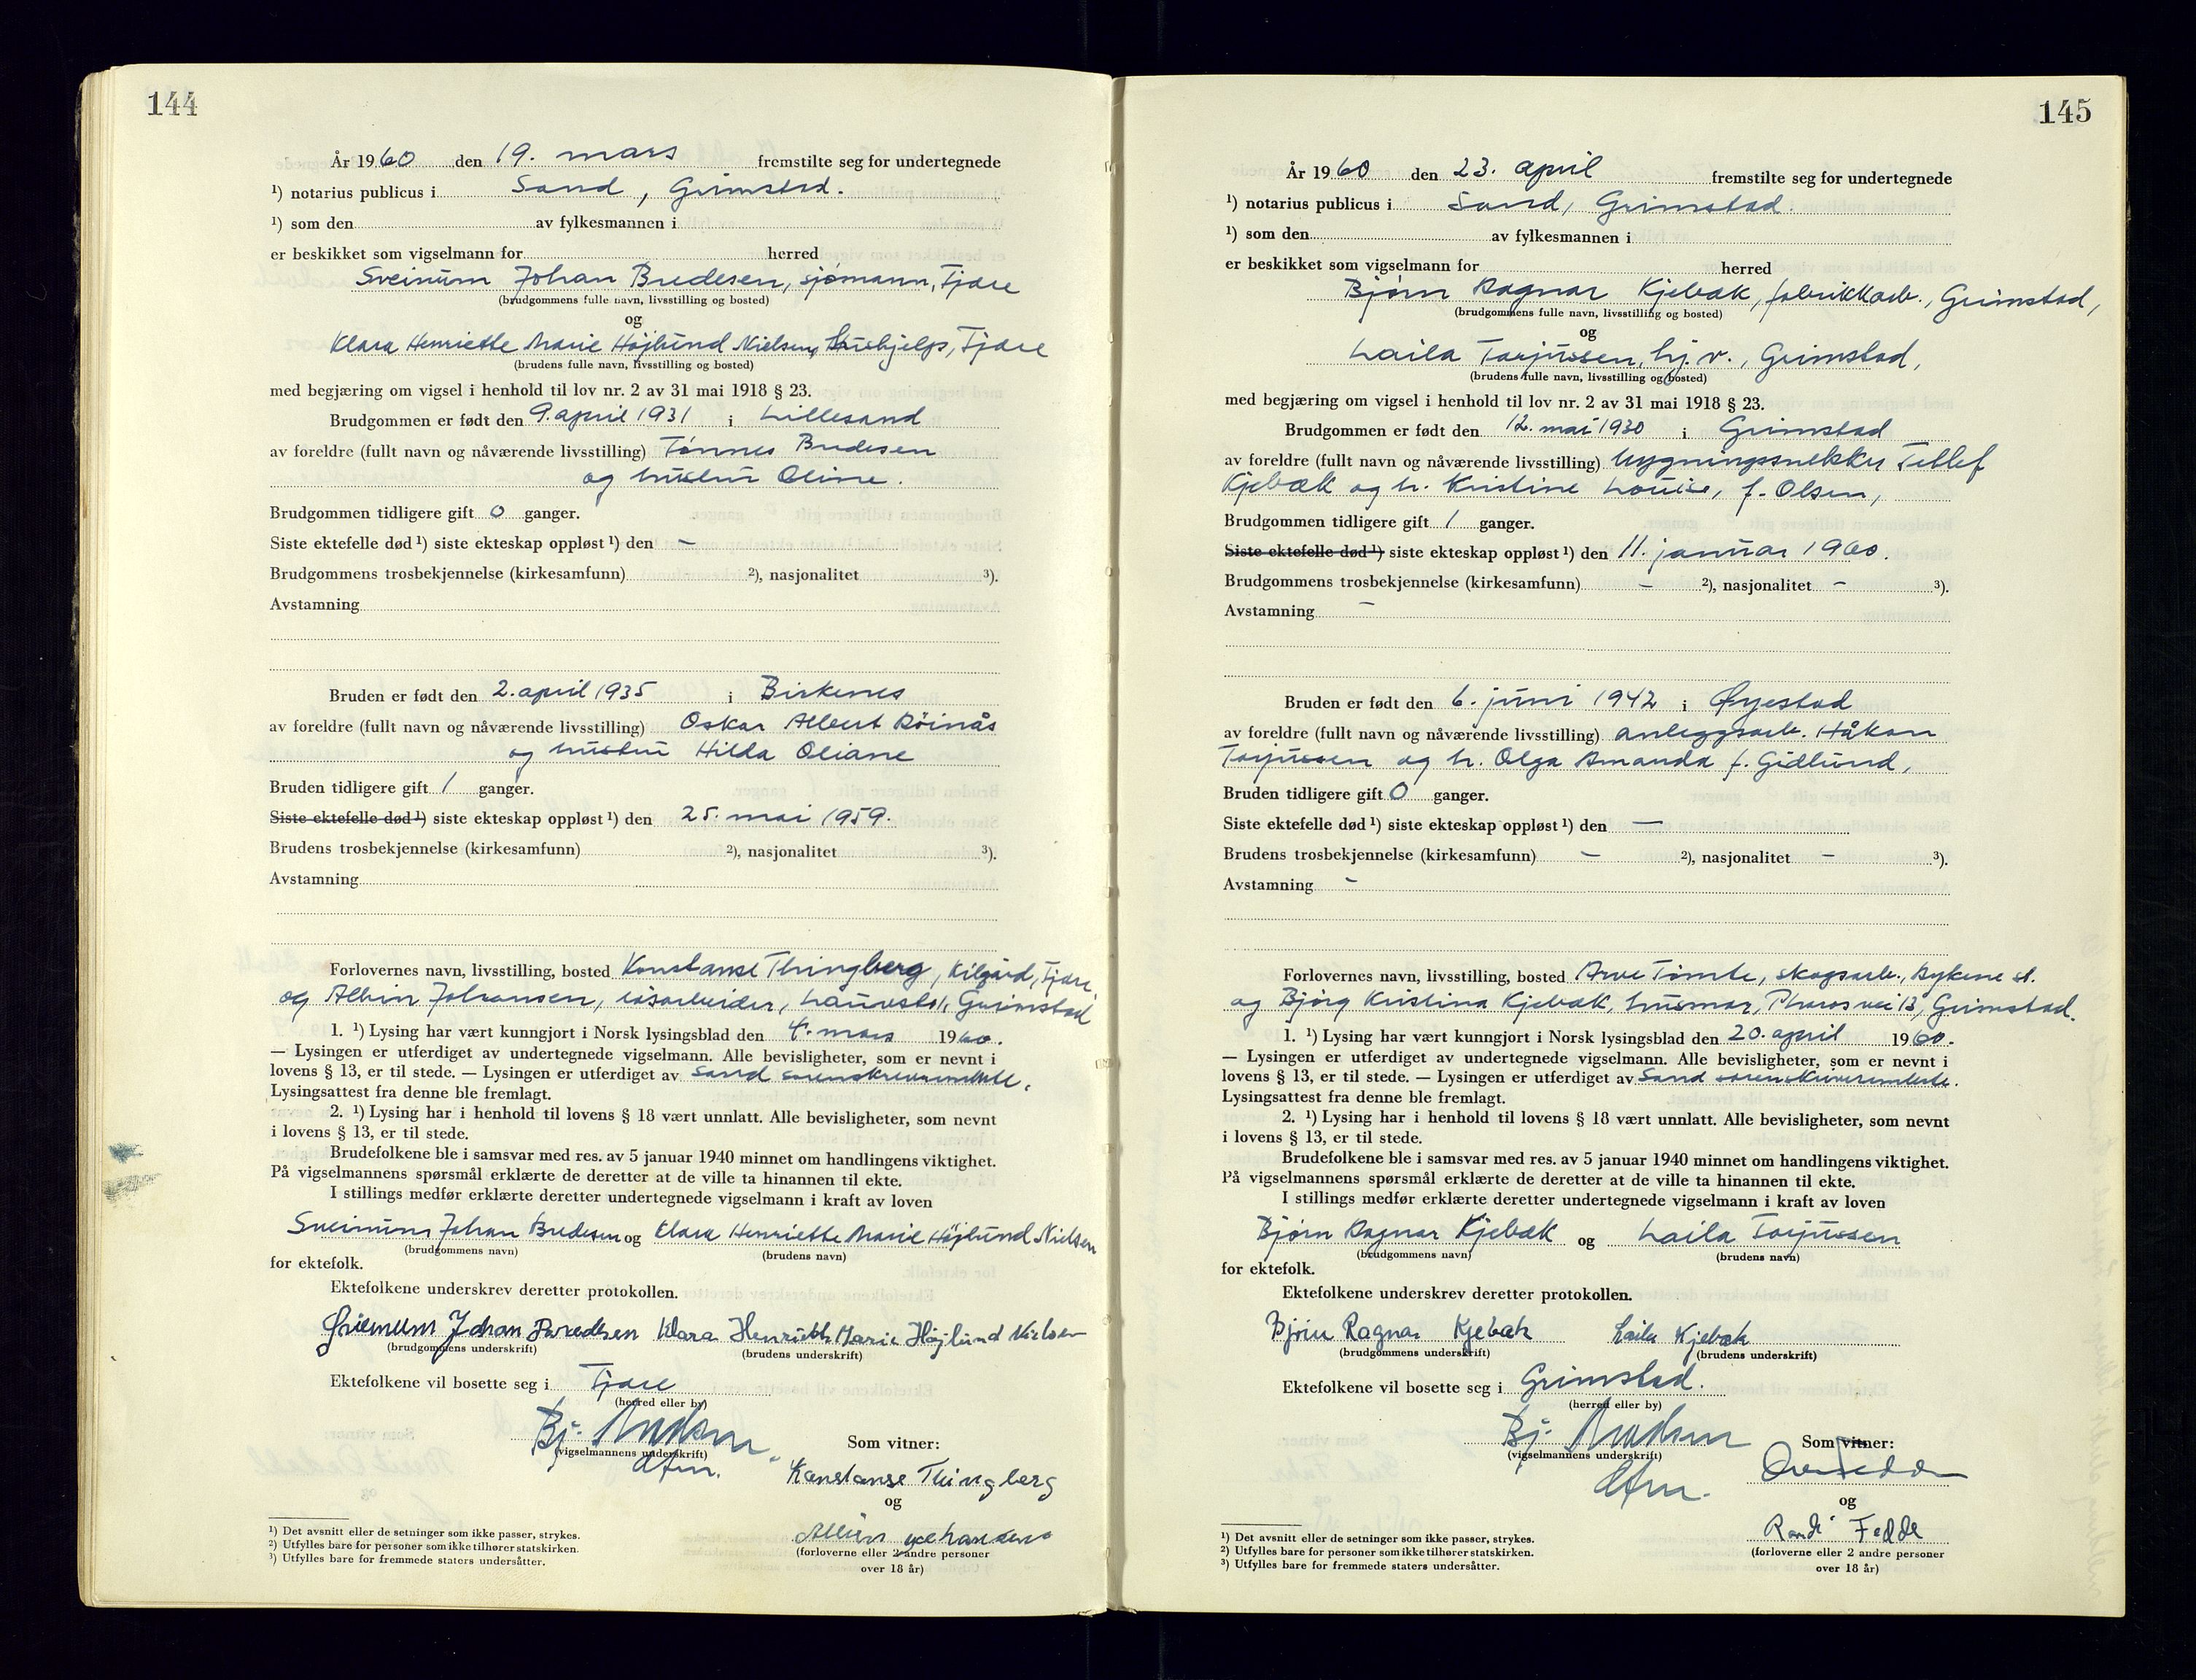 144
År 1960 den 19. mars fremstilte seg for undertegnede
¹) notarius publicus i Sand, Grimstad.
¹) som den av fylkesmannen i
er beskikket som vigselmann for herred
Sveinum Johan Bredesen, sjømann, Fjære
(brudgommens fulle navn, livsstilling og bosted)
og
Klara Henriette Marie Höjlund Nielsen, hushjelp, Fjære
(brudens fulle navn, livsstilling og bosted)
med begjæring om vigsel i henhold til lov nr. 2 av 31 mai 1918 § 23.
Brudgommen er født den 9. april 1931 i Lillesand
av foreldre (fullt navn og nåværende livsstilling) Tønnes Bredesen
og hustru Oline.
Brudgommen tidligere gift 0 ganger.
Siste ektefelle død ¹) siste ekteskap oppløst ¹) den –
Brudgommens trosbekjennelse (kirkesamfunn) ²), nasjonalitet ³).
Avstamning
Bruden er født den 2. april 1935 i Birkenes
av foreldre (fullt navn og nåværende livsstilling) Oskar Albert Röinås
og hustru Hilda Oliane
Bruden tidligere gift 1 ganger.
Siste ektefelle død ¹) siste ekteskap oppløst ¹) den 25. mai 1959.
Brudens trosbekjennelse (kirkesamfunn) ²), nasjonalitet ³).
Avstamning
Forlovernes navn, livsstilling, bosted Konstanse Thingberg, Kilgård, Fjære
og Albin Johansen, løsarbeider, Grimstad
1. ¹) Lysing har vært kunngjort i Norsk lysingsblad den 4. mars 1960.
— Lysingen er utferdiget av undertegnede vigselmann. Alle bevisligheter, som er nevnt i
lovens § 13, er til stede. — Lysingen er utferdiget av Sand sorenskriverembete.
Lysingsattest fra denne ble fremlagt.
2. ¹) Lysing har i henhold til lovens § 18 vært unnlatt. Alle bevisligheter, som nevnt
i lovens § 13, er til stede.
Brudefolkene ble i samsvar med res. av 5 januar 1940 minnet om handlingens viktighet.
På vigselmannens spørsmål erklærte de deretter at de ville ta hinannen til ekte.
I stillings medfør erklærte deretter undertegnede vigselmann i kraft av loven
Sveinum Johan Bredesen og Klara Henriette Marie Höjlund Nielsen
(brudgommens navn) (brudens navn)
for ektefolk.
Ektefolkene underskrev deretter protokollen.
Johan Bredesen Klara Henriette Marie Höjlund Nielsen
(brudgommens underskrift) (brudens underskrift)
Ektefolkene vil bosette seg i Fjære
(herred eller by)
Bj.
(vigselmannens underskrift)
Som vitner:
Konstanse Thingberg
og
Albin Johansen
(forloverne eller 2 andre personer
over 18 år)
¹) Det avsnitt eller de setninger som ikke passer, strykes.
²) Utfylles bare for personer som ikke tilhører statskirken.
³) Utfylles bare for fremmede staters undersåtter.
145
År 1960 den 23. april fremstilte seg for undertegnede
¹) notarius publicus i Sand, Grimstad.
¹) som den av fylkesmannen i
er beskikket som vigselmann for herred
Bjørn Ragnar Kjebæk, fabrikkarb., Grimstad,
(brudgommens fulle navn, livsstilling og bosted)
og
Laila Torjussen, hj.v., Grimstad,
(brudens fulle navn, livsstilling og bosted)
med begjæring om vigsel i henhold til lov nr. 2 av 31 mai 1918 § 23.
Brudgommen er født den 12. mai 1930 i Grimstad
av foreldre (fullt navn og nåværende livsstilling) bygningssnekker Tellef
Kjebæk og h. Kristine Louise, f. Olsen,
Brudgommen tidligere gift 1 ganger.
Siste ektefelle død ¹) siste ekteskap oppløst ¹) den 11. januar 1960.
Brudgommens trosbekjennelse (kirkesamfunn) – ²), nasjonalitet – ³).
Avstamning –
Bruden er født den 6. juni 1942 i Øyestad
av foreldre (fullt navn og nåværende livsstilling) anleggsarb. Håkon
Torjussen og h. Olga Amanda f. Gidlund,
Bruden tidligere gift 0 ganger.
Siste ektefelle død ¹) siste ekteskap oppløst ¹) den —
Brudens trosbekjennelse (kirkesamfunn) – ²), nasjonalitet – ³).
Avstamning –
Forlovernes navn, livsstilling, bosted Arve Tømte, skogsarb., Rykene st.
og Bjørg Kristina Kjebæk, husmor, Pharosvei 13, Grimstad.
1. ¹) Lysing har vært kunngjort i Norsk lysingsblad den 20. april 1960.
— Lysingen er utferdiget av undertegnede vigselmann. Alle bevisligheter, som er nevnt i
lovens § 13, er til stede. — Lysingen er utferdiget av Sand sorenskriverembete.
Lysingsattest fra denne ble fremlagt.
2. ¹) Lysing har i henhold til lovens § 18 vært unnlatt. Alle bevisligheter, som nevnt
i lovens § 13, er til stede.
Brudefolkene ble i samsvar med res. av 5 januar 1940 minnet om handlingens viktighet.
På vigselmannens spørsmål erklærte de deretter at de ville ta hinannen til ekte.
I stillings medfør erklærte deretter undertegnede vigselmann i kraft av loven
Bjørn Ragnar Kjebæk og Laila Torjussen
(brudgommens navn) (brudens navn)
for ektefolk.
Ektefolkene underskrev deretter protokollen.
Bjørn Ragnar Kjebæk Laila Kjebæk
(brudgommens underskrift) (brudens underskrift)
Ektefolkene vil bosette seg i Grimstad.
(herred eller by)
Bj.
(vigselmannens underskrift)
Som vitner:
og
Randi Fedde
(forloverne eller 2 andre personer
over 18 år)
¹) Det avsnitt eller de setninger som ikke passer, strykes.
²) Utfylles bare for personer som ikke tilhører statskirken.
³) Utfylles bare for fremmede staters undersåtter.